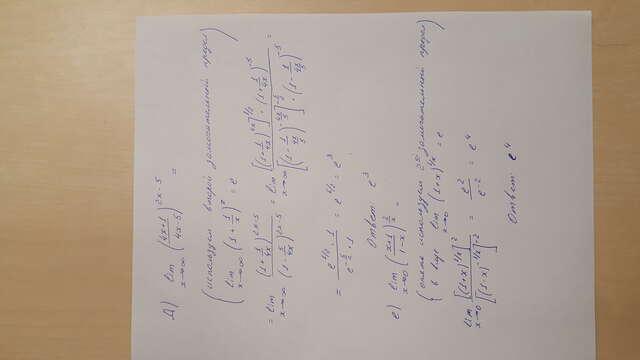 Д) lim x→∞ ((4x+1)/(4x-5))^(2x-5) =
(используем второй замечательный предел
lim x→∞ (1 + 1/x)^x = e)
= lim x→∞ (1 + 1/4x)^(2x-5) / (1 - 5/4x)^(2x-5) = lim x→∞ [(1 + 1/4x)^(4x)]^(1/2) · (1 + 1/4x)^(-5) / [(1 - 1/(4x/5))^(-4x/5)]^(-5/2) · (1 - 1/(4x/5))^(-5) =
= e^(1/2) · 1 / e^(-5/2) · 1 = e^(6/2) = e^3
Ответ: e^3
е) lim x→0 ((x+1)/(1-x))^(2/x) =
(опять используем 2й замечательный предел
в виде lim x→0 (1+x)^(1/x) = e)
lim x→0 [(1+x)^(1/x)]^2 / [(1-x)^(-1/x)]^(-2) = e^2 / e^(-2) = e^4
Ответ: e^4